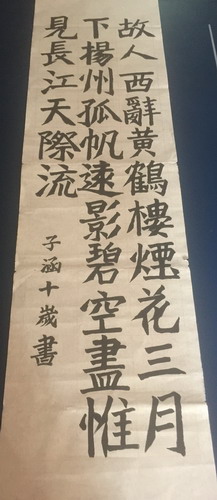 故人西辭黃鶴樓煙花三月
下揚州孤帆遠影碧空盡惟
見長江天際流
子涵十歲書